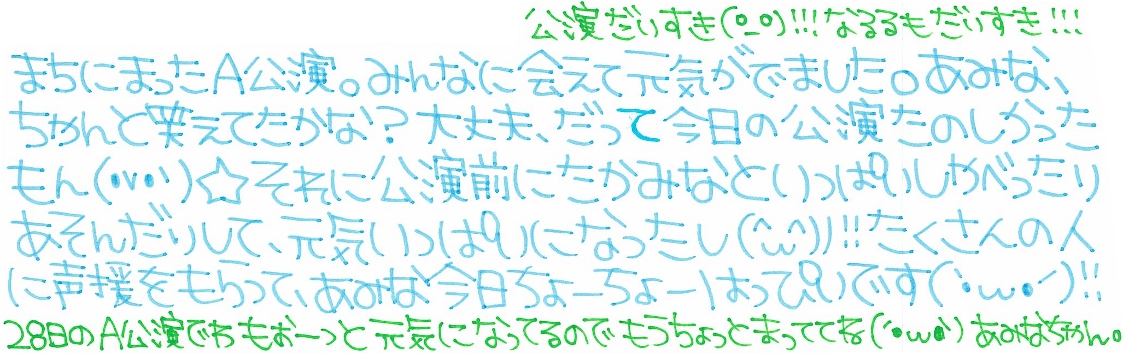 公演だいすき(o_o)!!!なるるもだいすき!!!
まちにまったA公演。みんなに会えて元気がでました。あみな、
ちゃんと笑えてたかな?大丈夫、だって今日の公演たのしかった
もん(•v•`)☆それに公演前にたかみなといっぱいしゃべったり
あそんだりして、元気いっぱいになったし(^ω^))!!たくさんの人
に声援をもらって、あみな今日ちょーちょーはっぴいです(`•ω•´)!!
28日のA公演でわもおーっと元気になってるのでもうちょっとまっててね(´•ω•`)あみなちゃん。